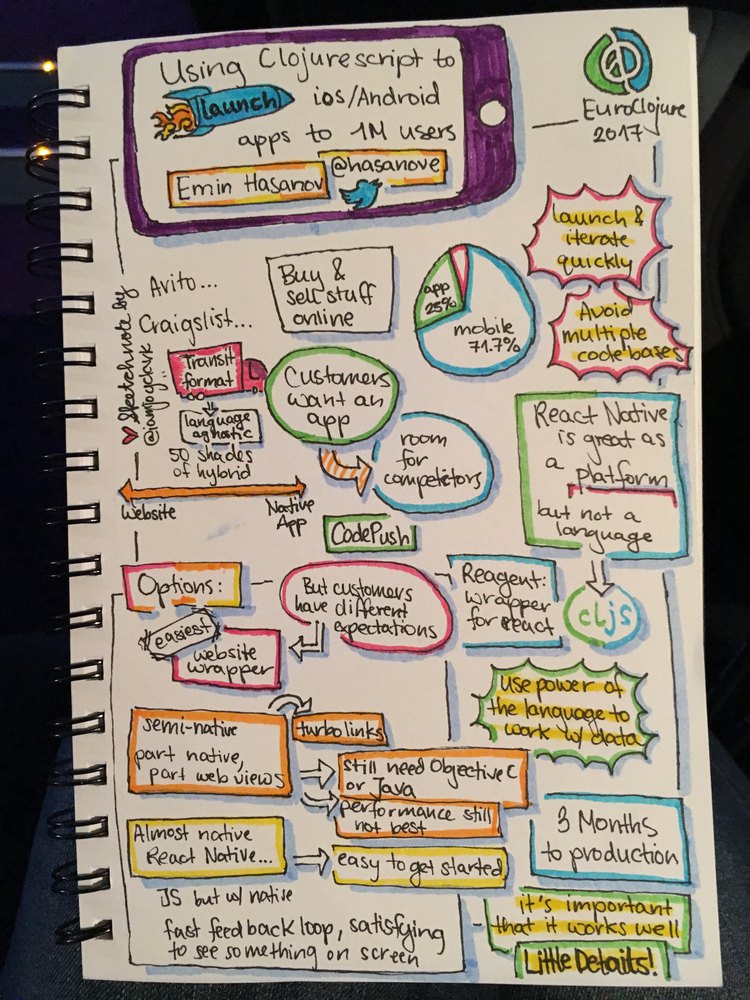 Using Clojurescript to
launch ios/Android
apps to 1M users
Emin Hasanov
@hasanove
EuroClojure
2017
Sketchnote by
@iamjoyclark
Avito...
Craigslist...
Buy &
sell stuff
online
app
25%
mobile
71.7%
launch &
iterate
quickly
Avoid
multiple
code bases
Transit
format
language
agnostic
Customers
want an
app
room
for
competitors
50 shades
of hybrid
Website
Native
App
CodePush
React Native
is great as
a platform
but not a
language
cljs
Options:
But customers
have different
expectations
Reagent:
wrapper
for react
easiest
website
wrapper
Use power of
the language to
work w/ data
semi-native
part native,
part web views
turbolinks
still need Objective C
or Java
performance still
not best
3 Months
to production
Almost native
React Native...
easy to get started
JS but w/ native
fast feedback loop, satisfying
to see something on screen
it's important
that it works well
Little Details!